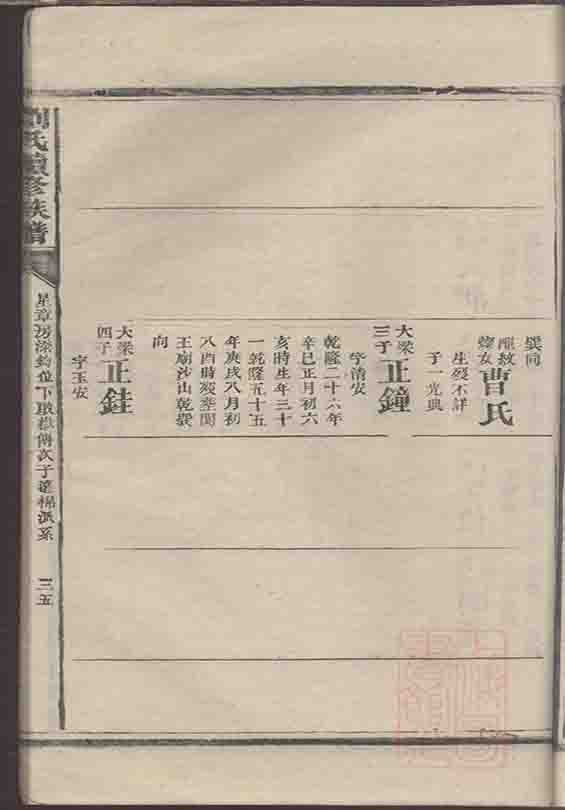 巽向
配紋
女曹氏
生歿不詳
子一光典
大梁
三子正鐘
字清安
乾隆二十六年
辛巳正月初六
亥時生年三十
一乾隆五十五
年庚戌八月初
八酉時歿葬関
王廟沙山乾巽
向
大梁
四子正銈
字玉安
劉氏續修族譜
星章房深鈞位下
三五